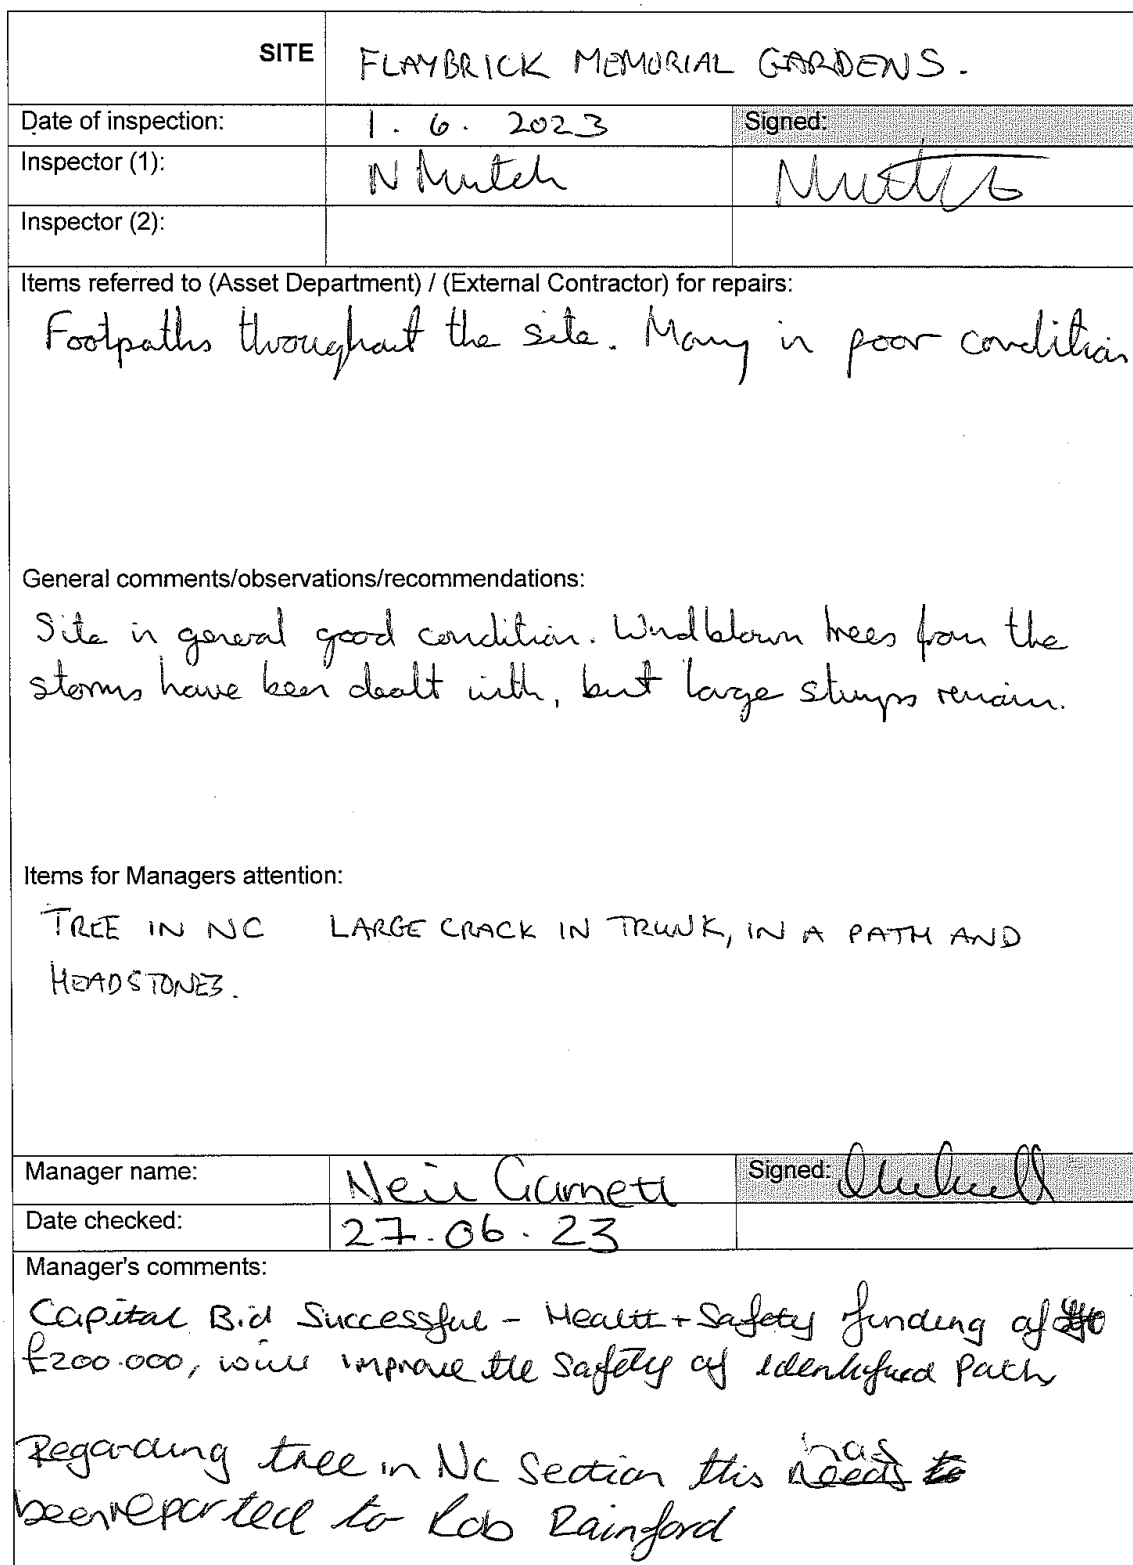 SITE FLAYBRICK MEMORIAL GARDENS.
Date of inspection: 1. 6. 2023 Signed:
Inspector (1): N Mutch
Inspector (2):
Items referred to (Asset Department) / (External Contractor) for repairs:
Footpaths throughout the site. Many in poor condition
General comments/observations/recommendations:
Site in general good condition. Windblown trees from the
storms have been dealt with, but large stumps remain.
Items for Managers attention:
TREE IN NC LARGE CRACK IN TRUNK, IN A PATH AND
HEADSTONES.
Manager name: Neil Garnett Signed:
Date checked: 27.06.23
Manager's comments:
Capital Bid Successful - Health + Safety funding of
£200.000, will improve the safety of identified path
Regarding tree in NC Section this has
been reported to Rob Rainford